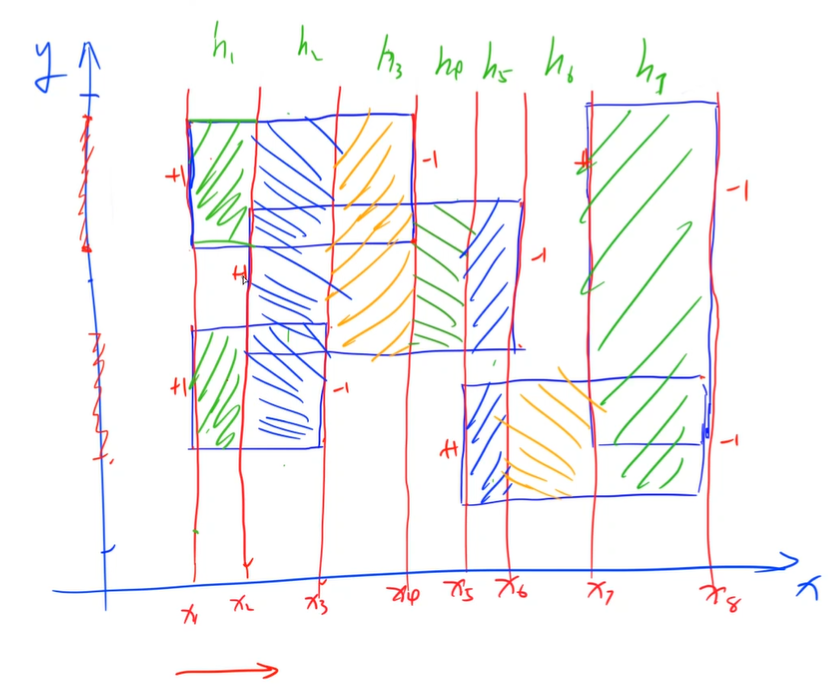 h₁ h₂ h₃ h₄ h₅ h₆ h₇
y
+1 -1
+1 -1
+1 -1
+1 -1
-1
x₁ x₂ x₃ x₄ x₅ x₆ x₇ x₈
x